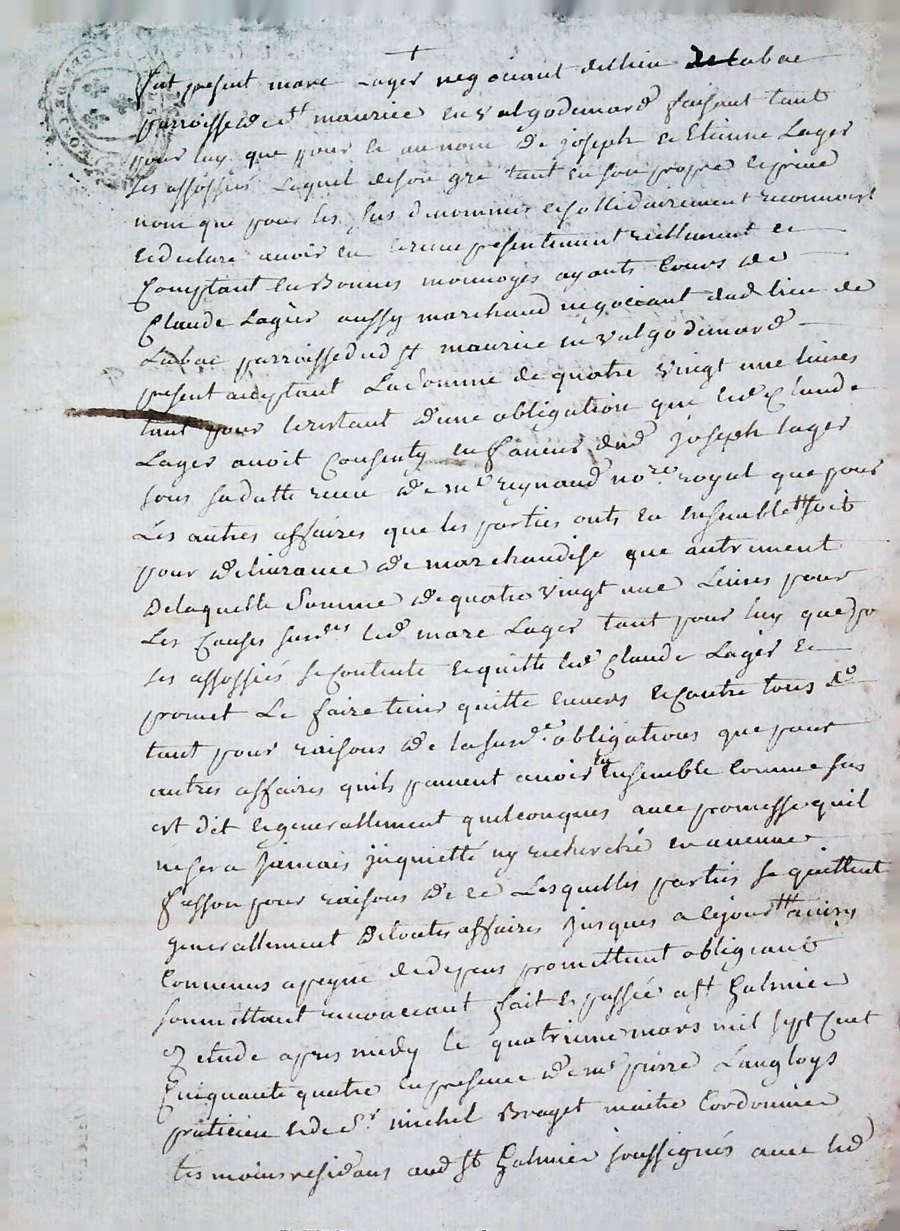 +
fut present marc Lager negotiant du lieu de Labac
parroisse de st maurice en valgodemard faisant tant
pour luy que pour et au nom de joseph et Etienne Lager
ses assossiés Lequel de son gré tant en son propre et privé
nom que pour les sus denommés et sollidairement reconnoist
et declare avoir eu et receu presentement reellement et
Comptant en Bonnes monnoyes ayants Cours de
Claude Lagier aussy marchand negociant dud lieu de
Labac parroisse dud st maurice en valgodemard
present acceptant La somme de quatre vingt une livres
tant pour le restant d'une obligation que led Claude
Lager avoit Consenty en faveur dud joseph lager
sous sa datte receu de me reynaud nore royal que pour
Les autres affaires que les parties onts eu ensemble soit
pour delivrance de marchandise que autrement
De laquelle Somme de quatre vingt une Livres pour
Les Causes susdes led marc Lager tant pour luy que po
ses assossiés se Contente et quitte led Claude Lager et
promet Le faire tenir quitte envers et Contre tous
tant pour raisons de la susde obligations que pour
autres affaires quils peuvent avoir eu ensemble Comme sus
est dit et generallement quelconques avec promesse quil
ne sera jamais jnquietté ny recherché en aucune
fasson pour raisons de ce Lesquelles parties se quittent
generallement De toutes affaires jusques a ce jour ainsy
Convenus a peyne de depens promettent obligeant
soumettant renonceant fait et passée a st Galmier
etude apres midy le quatrieme mars mil sept Cent
Cinquante quatre en presence de me pierre Langloys
praticien et de sr michel Braget maitre Cordonnier
tesmoins residans aud st Galmier soussignés avec led